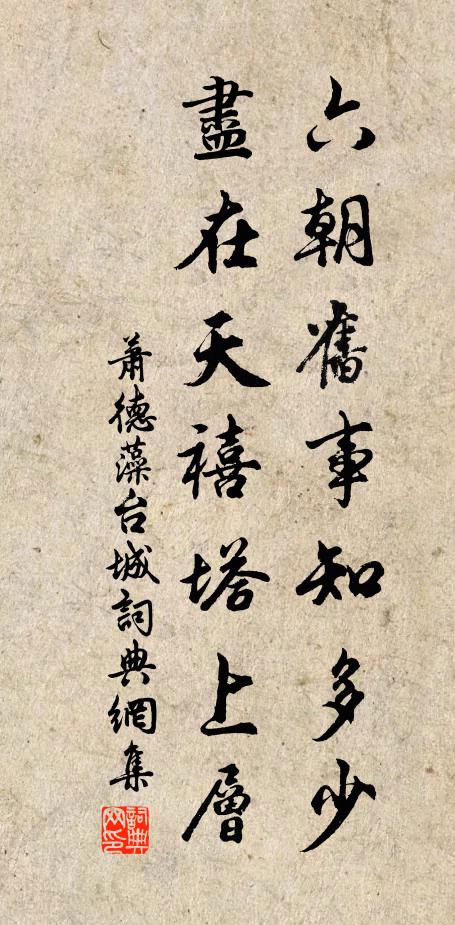 六朝舊事知多少
盡在天禧塔上層
蕭德藻台城詞典網集
詞典
網印